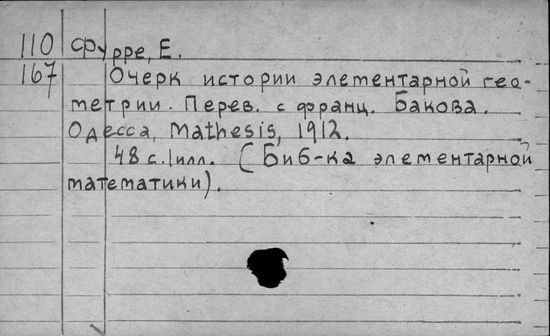 110 Фурре, Е.
167 Очерк истории элементарной гео-
метрии. Перев. с франц. Бакова.
Одесса, Mathesis, 1912.
48 с. илл. (Биб-ка элементарной
математики).